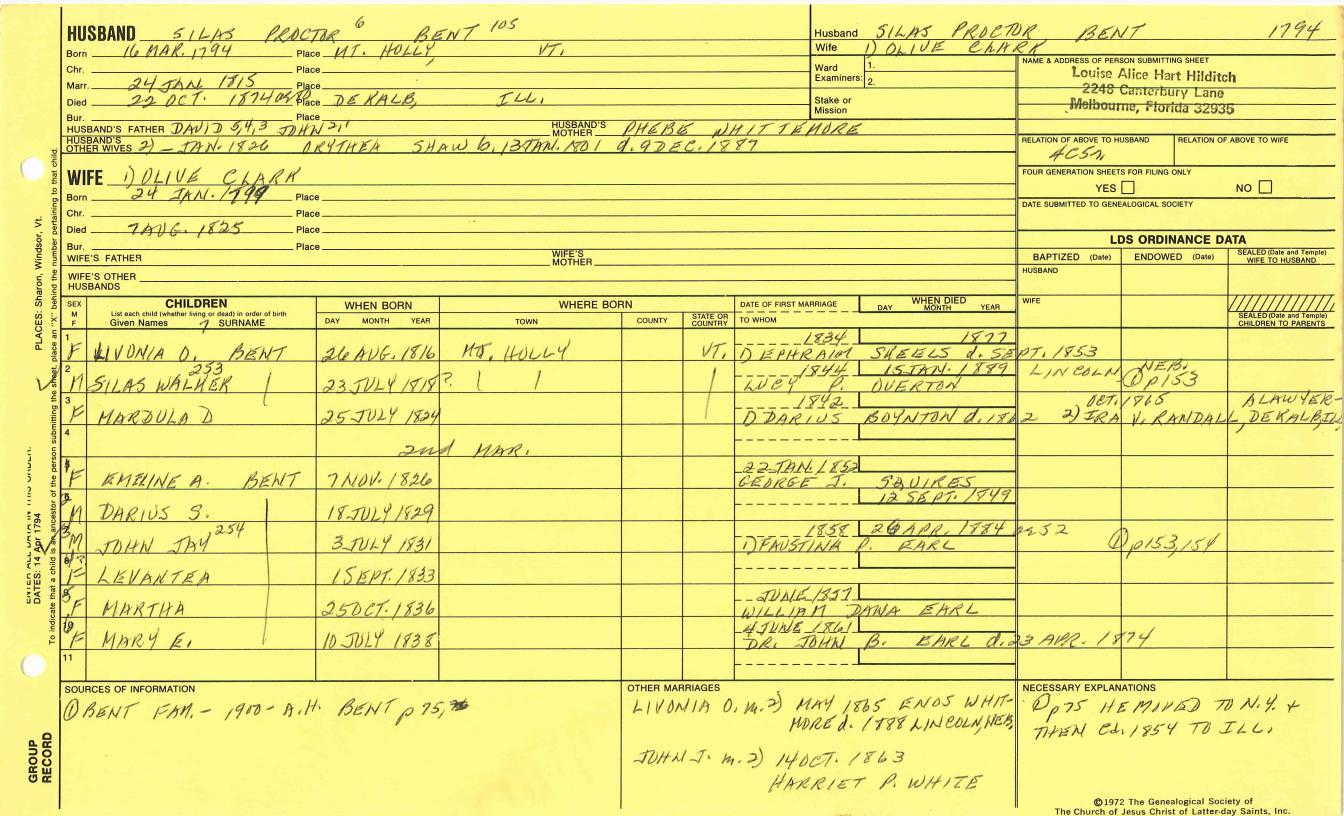 HUSBAND SILAS PROCTOR 6 BENT 105
Born 16 MAR. 1794 Place MT. HOLLY, VT.
Chr. Place
Marr. 24 JAN. 1815 Place
Died 22 OCT. 1874 Place DE KALB, ILL.
Bur. Place
HUSBAND'S FATHER DAVID 5,4,3 JOHN 2,1 HUSBAND'S MOTHER PHEBE WHITTEMORE
HUSBAND'S OTHER WIVES 2) - JAN. 1826 DRYTHEA SHAW b. 13 JAN. 1801 d. 9 DEC. 1887
Husband SILAS PROCTOR BENT 1794
Wife 1) OLIVE CLARK
Ward Examiners: 1.
2.
Stake or Mission
NAME & ADDRESS OF PERSON SUBMITTING SHEET
Louise Alice Hart Hilditch
2248 Canterbury Lane
Melbourne, Florida 32935
RELATION OF ABOVE TO HUSBAND RELATION OF ABOVE TO WIFE
4C5r
FOUR GENERATION SHEETS FOR FILING ONLY
YES NO
DATE SUBMITTED TO GENEALOGICAL SOCIETY
WIFE 1) OLIVE CLARK
Born 24 JAN. 1799 Place
Chr. Place
Died 7 AUG. 1825 Place
Bur. Place
WIFE'S FATHER WIFE'S MOTHER
WIFE'S OTHER HUSBANDS
LDS ORDINANCE DATA
BAPTIZED (Date) ENDOWED (Date) SEALED (Date and Temple) WIFE TO HUSBAND
HUSBAND
WIFE
SEALED (Date and Temple) CHILDREN TO PARENTS
SEX M F
CHILDREN
List each child (whether living or dead) in order of birth
Given Names 7 SURNAME
WHEN BORN
DAY MONTH YEAR
WHERE BORN
TOWN COUNTY STATE OR COUNTRY
DATE OF FIRST MARRIAGE
TO WHOM
WHEN DIED
DAY MONTH YEAR
1 1834 1877
F LIVONIA O. BENT 26 AUG. 1816 MT. HOLLY VT. 1) EPHRAIM SKEELS d. SEPT. 1853
2 253 1844 15 JAN. 1889 LINCOLN, NEB.
M SILAS WALKER 23 JULY 1818? LUCY P. OVERTON ① p153
3 1842 OCT. 1865 A LAWYER-
F MARDULA D 25 JULY 1824 1) DARIUS BOYNTON d. 1862 2) IRA V. RANDALL, DEKALB, ILL
4
2nd MAR.
22 JAN. 1852
F EMELINE A. BENT 7 NOV. 1826 GEORGE J. SQUIRES
12 SEPT. 1849
M DARIUS S. 18 JULY 1829
1858 26 APR. 1884
M JOHN JAY 254 3 JULY 1831 1) FAUSTINA P. EARL ① p153,154
F LEVANTEA 1 SEPT. 1833
JUNE 1857
F MARTHA 25 OCT. 1836 WILLIAM DANA EARL
4 JUNE 1861
F MARY E. 10 JULY 1838 DR. JOHN B. EARL d. 23 APR. 1874
11
SOURCES OF INFORMATION
① BENT FAM. - 1900 - A.H. BENT p 75,
OTHER MARRIAGES
LIVONIA O. m. 2) MAY 1865 ENOS WHIT-
MORE d. 1888 LINCOLN, NEB.
JOHN J. m. 2) 14 OCT. 1863
HARRIET P. WHITE
NECESSARY EXPLANATIONS
① p75 HE MOVED TO N.Y. +
THEN Cd. 1854 TO ILL.
©1972 The Genealogical Society of
The Church of Jesus Christ of Latter-day Saints, Inc.
PLACES: Sharon, Windsor, Vt.
ENTER ALL DATA IN THIS ORDER:
DATES: 14 Apr 1794
To indicate that a child is an ancestor of the person submitting the sheet, place an "X" behind the number pertaining to that child.
GROUP RECORD